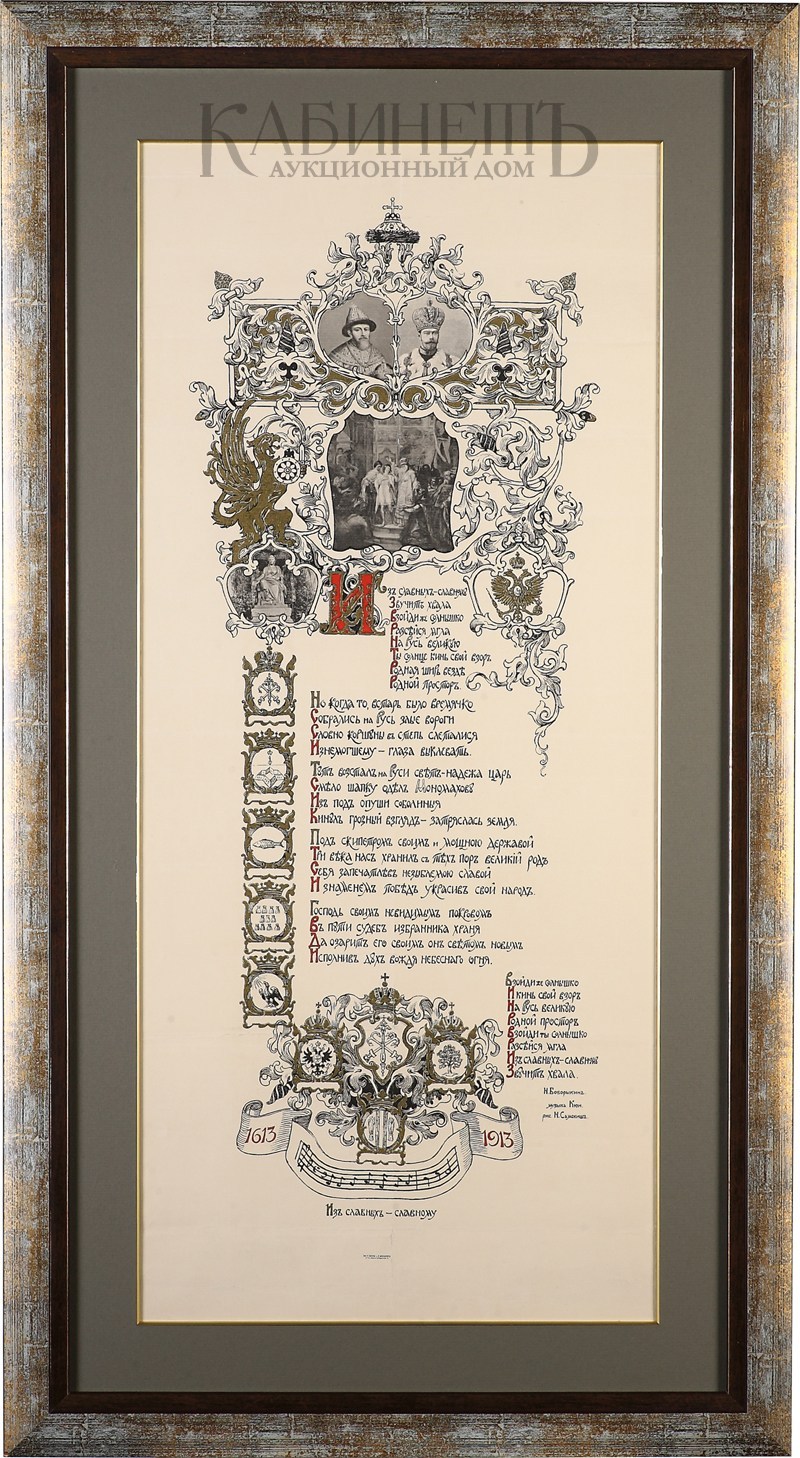 КАБИНЕТЪ
АУКЦИОННЫЙ ДОМ
Изъ славныхъ-славная
Звучитъ хвала
Взойди же солнышко
Разсѣйся мгла
На Русь великую
Ты солнце кинь свой взоръ
Родная ширь вездѣ
Родной просторъ.
Но когда то, встарь было времячко
Собрались на Русь злые вороги
Словно коршуны въ степь слеталися
Изнемогшему – глаза выклевать.
Тутъ возсталъ на Руси свѣтъ-надежа царь
Смѣло шапку одѣлъ Мономахову
Изъ подъ опуши соболиныя
Кинулъ грозный взглядъ – затряслась земля.
Подъ скипетромъ своимъ и мощною державой
Три вѣка насъ хранилъ съ тѣхъ поръ великій родъ
Себя запечатлѣвъ незыблемою славой
И знаменемъ побѣдъ украсивъ свой народъ.
Господь своимъ невидимымъ покровомъ
Въ пути судебъ избранника храня
Да озаритъ его своимъ онъ свѣтомъ новымъ
Исполнивъ духъ вождя небеснаго огня.
Взойди же солнышко
И кинь свой взоръ
На Русь великую
Родной просторъ
Взойди ты солнышко
Разсѣйся мгла
Изъ славныхъ-славная
Звучитъ хвала.
музыка Кюи.
рис. Н.
1613 1913
Изъ славныхъ – славному